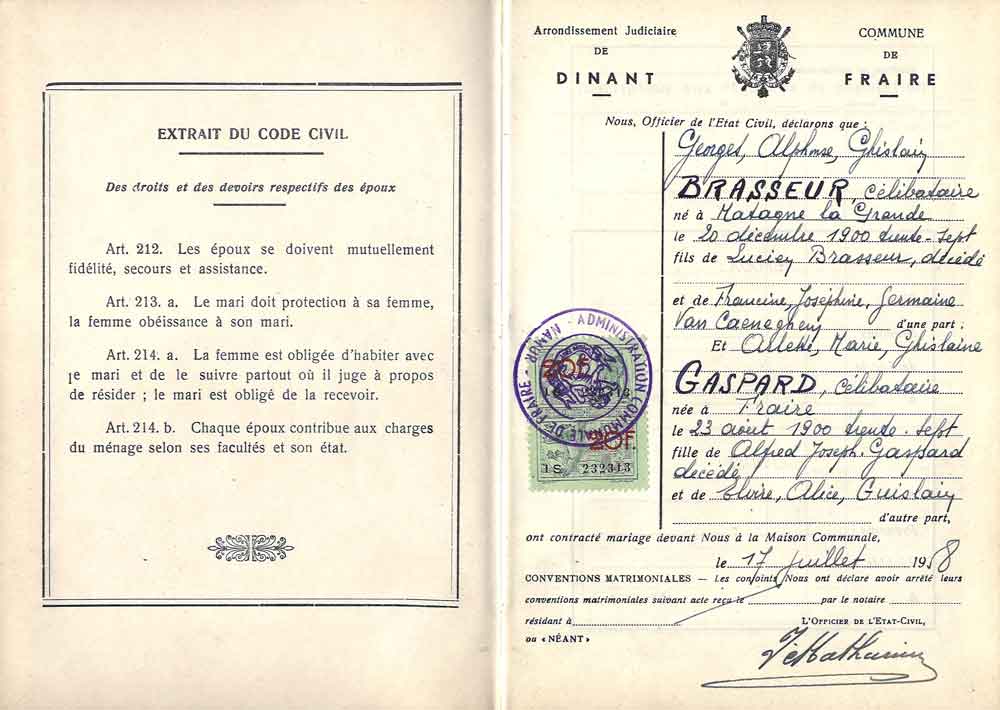 EXTRAIT DU CODE CIVIL
Des droits et des devoirs respectifs des époux
Art. 212. Les époux se doivent mutuellement
fidélité, secours et assistance.
Art. 213. a. Le mari doit protection à sa femme,
la femme obéissance à son mari.
Art. 214. a. La femme est obligée d'habiter avec
le mari et de le suivre partout où il juge à propos
de résider ; le mari est obligé de la recevoir.
Art. 214. b. Chaque époux contribue aux charges
du ménage selon ses facultés et son état.
Arrondissement Judiciaire
DE
DINANT
COMMUNE
DE
FRAIRE
Nous, Officier de l'Etat Civil, déclarons que :
Georges, Alphonse, Ghislain
BRASSEUR, célibataire
né à Matagne la Grande
le 20 décembre 1900 trente-sept
fils de Lucien Brasseur, décédé
et de Francine, Joséphine, Germaine
Van Caeneghem d'une part ;
Et Arlette, Marie, Ghislaine
GASPARD, célibataire
née à Fraire
le 23 août 1900 trente-sept
fille de Alfred Joseph Gaspard
décédé
et de Elvire, Alice, Guislain
d'autre part,
ont contracté mariage devant Nous à la Maison Communale,
le 17 juillet 1958
CONVENTIONS MATRIMONIALES — Les conjoints Nous ont déclaré avoir arrêté leurs
conventions matrimoniales suivant acte reçu le par le notaire
résidant à
ou «NÉANT»
L'OFFICIER DE L'ETAT-CIVIL,
ADMINISTRATION COMMUNALE DE FRAIRE - NAMUR -
20f.
20f.
1S 232313